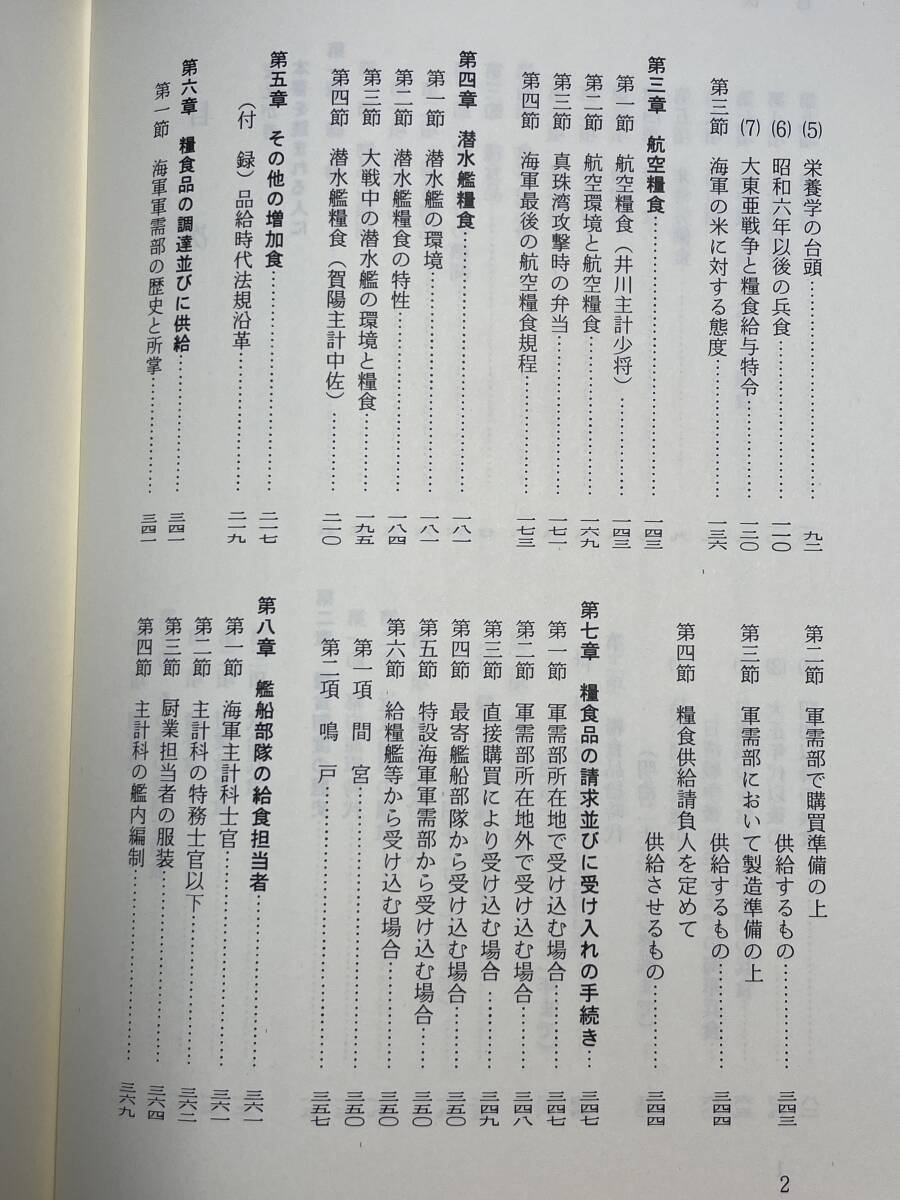 (5) 栄養学の台頭……………………九二
(6) 昭和六年以後の兵食……………………一一〇
(7) 大東亜戦争と糧食給与特令……………………一二〇
第三節 海軍の米に対する態度……………………一三六
第三章 航空糧食……………………一四三
第一節 航空糧食（井川主計少将）……………………一四三
第二節 航空環境と航空糧食……………………一六九
第三節 真珠湾攻撃時の弁当……………………一七一
第四節 海軍最後の航空糧食規程……………………一七三
第四章 潜水艦糧食……………………一八一
第一節 潜水艦の環境……………………一八一
第二節 潜水艦糧食の特性……………………一八四
第三節 大戦中の潜水艦の環境と糧食……………………一九五
第四節 潜水艦糧食（賀陽主計中佐）……………………二一〇
第五章 その他の増加食……………………二一七
（付 録）品給時代法規沿革……………………二一九
第六章 糧食品の調達並びに供給……………………三四一
第一節 海軍軍需部の歴史と所掌……………………三四一
第二節 軍需部で購買準備の上
供給するもの……………………三四三
第三節 軍需部において製造準備の上
供給するもの……………………三四四
第四節 糧食供給請負人を定めて
供給させるもの……………………三四四
第七章 糧食品の請求並びに受け入れの手続き……三四七
第一節 軍需部所在地で受け込む場合……………………三四七
第二節 軍需部所在地外で受け込む場合……………………三四八
第三節 直接購買により受け込む場合……………………三四九
第四節 最寄艦船部隊から受け込む場合……………………三五〇
第五節 特設海軍軍需部から受け込む場合……………………三五〇
第六節 給糧艦等から受け込む場合……………………三五〇
第一項 間 宮……………………三五〇
第二項 鳴 戸……………………三五七
第八章 艦船部隊の給食担当者……………………三六一
第一節 海軍主計科士官……………………三六一
第二節 主計科の特務士官以下……………………三六二
第三節 厨業担当者の服装……………………三六四
第四節 主計科の艦内編制……………………三六九
2